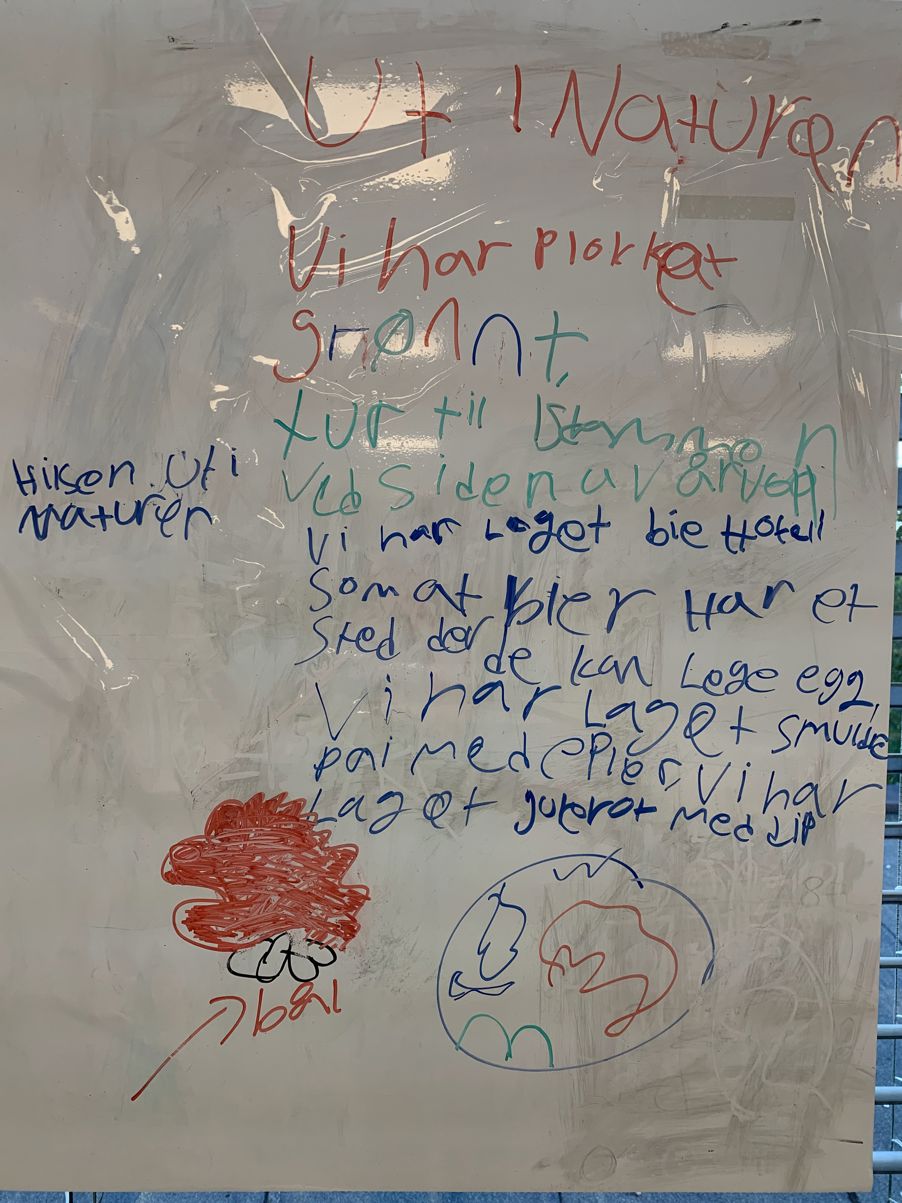 Ut i Naturen
Vi har plorket
grønnt,
tur til Istammen
ved siden av årvoll
Hilsen Uti
naturen
Vi har laget bie Hotell
Som at bier Har et
Sted der
de kan Lege egg,
Vi har Laget smulde
pai med epler, Vi har
Laget med
bål